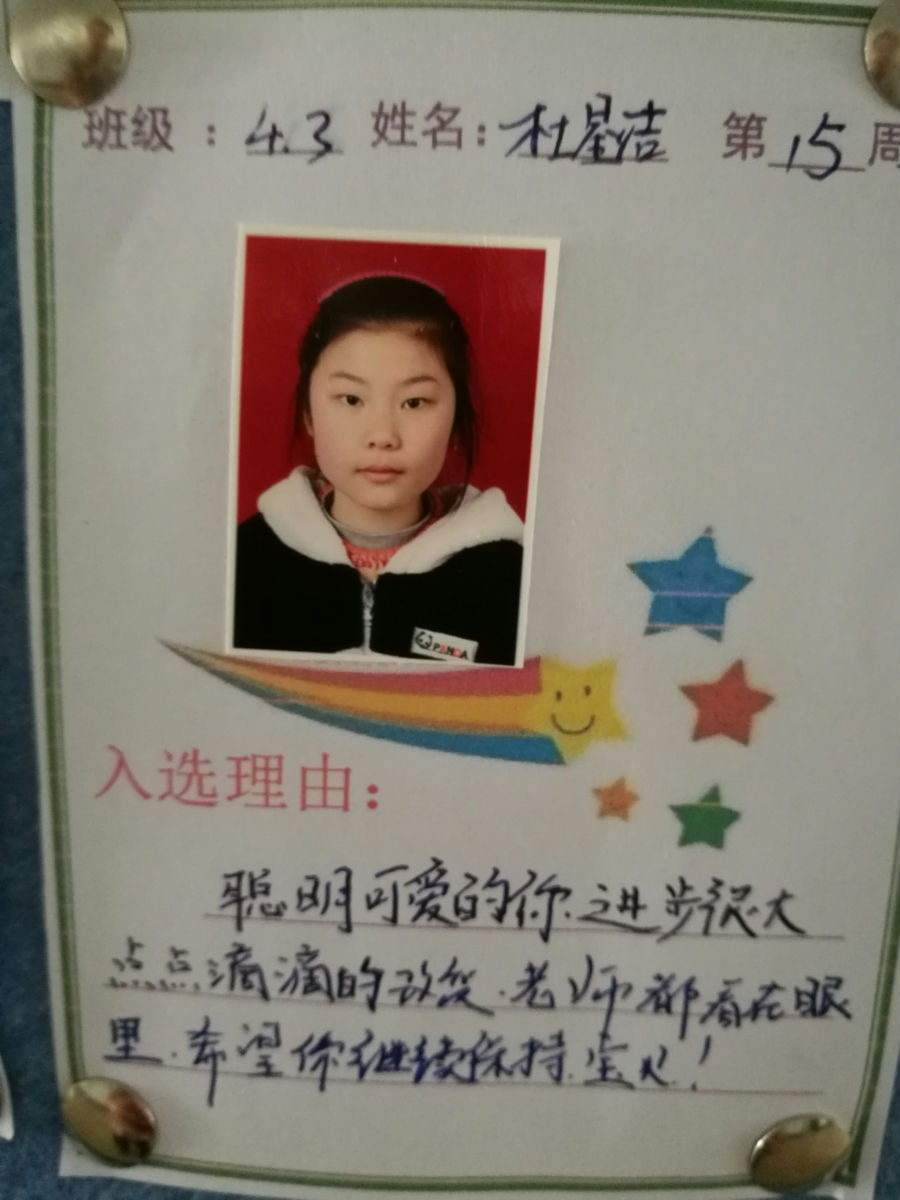 班级：4.3 姓名：杜星洁 第15周
PANDA
入选理由：
聪明可爱的你.进步很大
点点滴滴的改变.老师都看在眼
里.希望你继续保持.宝贝！